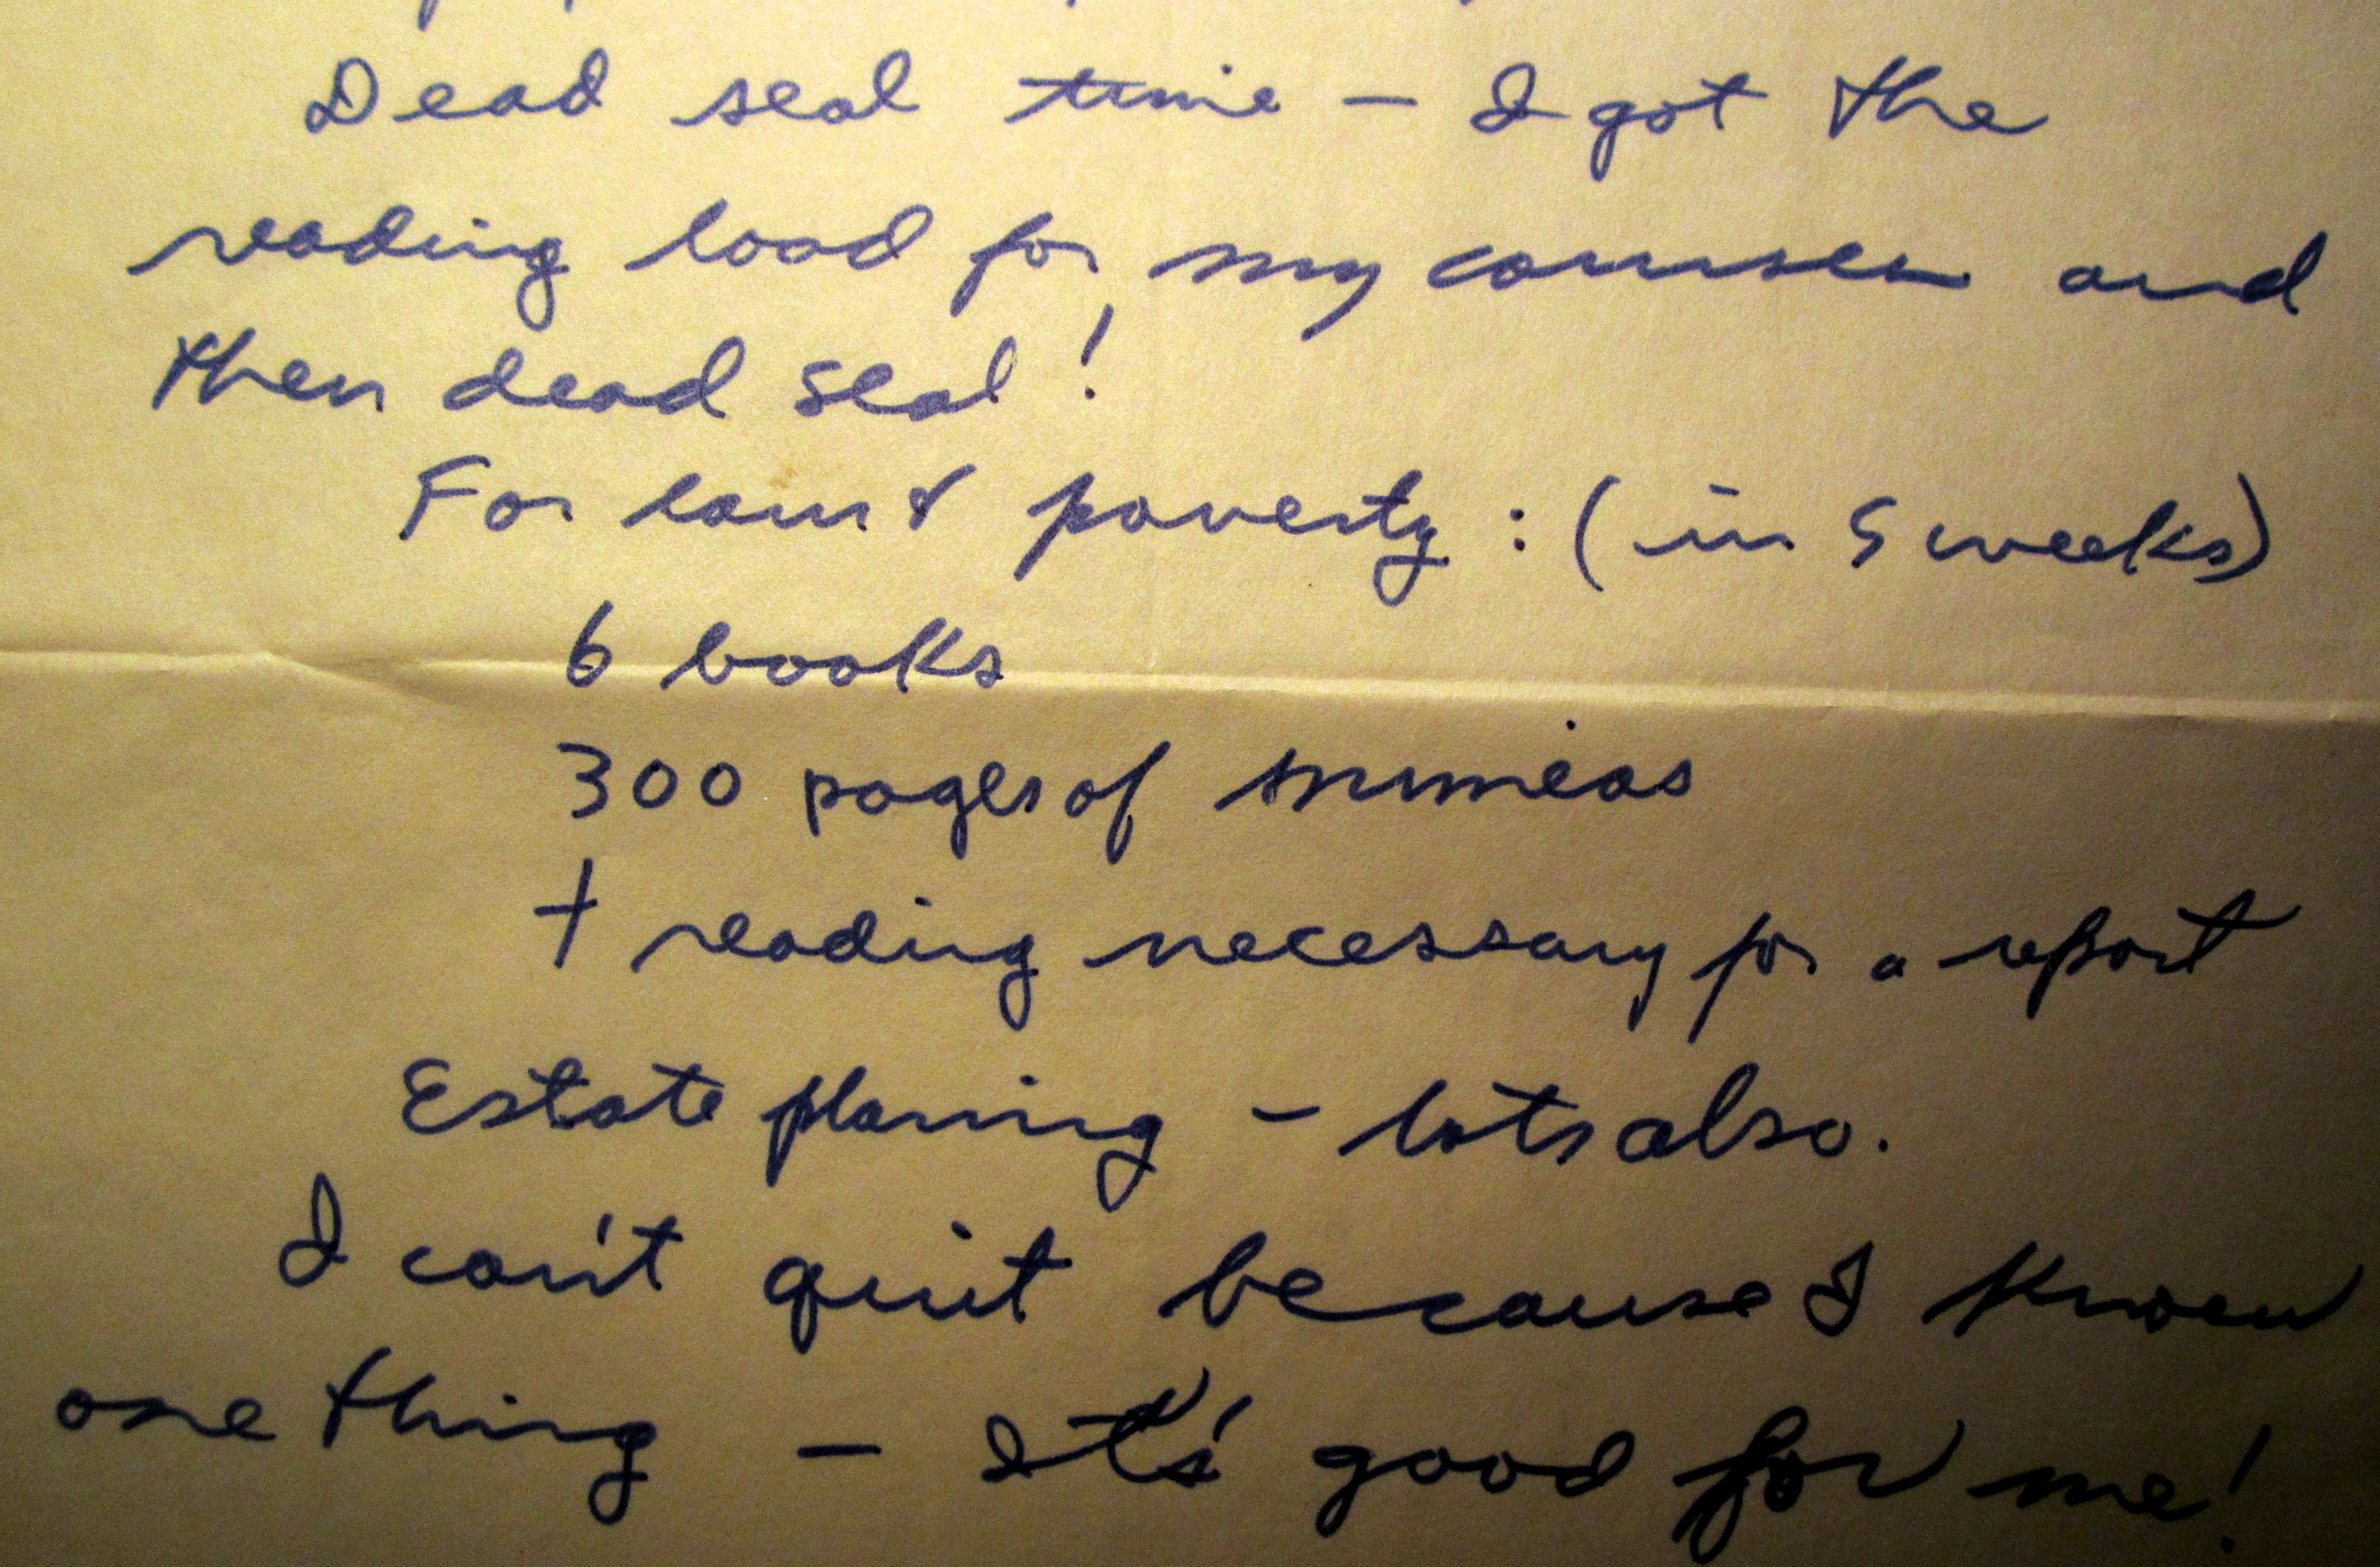 Dead seal time – I got the
reading load for my courses and
then dead seal!
For law & poverty: (in 5 weeks)
6 books
300 pages of mimeos
+ reading necessary for a report
Estate planing – lots also.
I can't quit because I know
one thing – It's good for me!